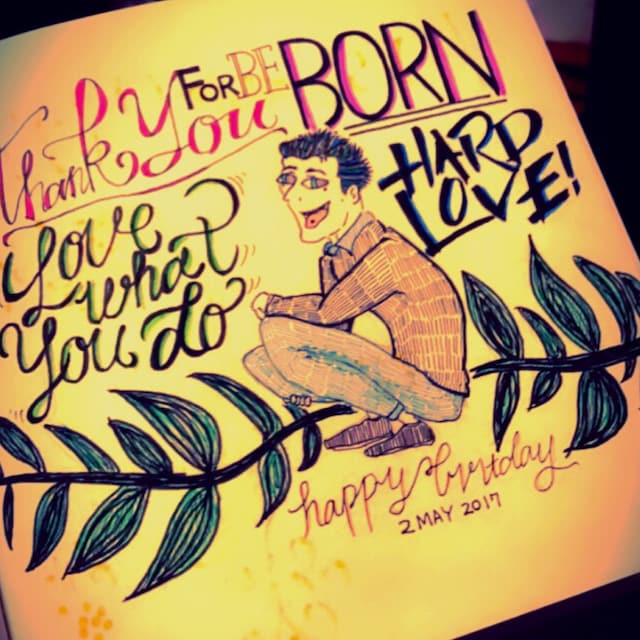 Thank You FOR BE BORN
HARD
LOVE!
Love
what
You do
happy birtday
2 MAY 2017